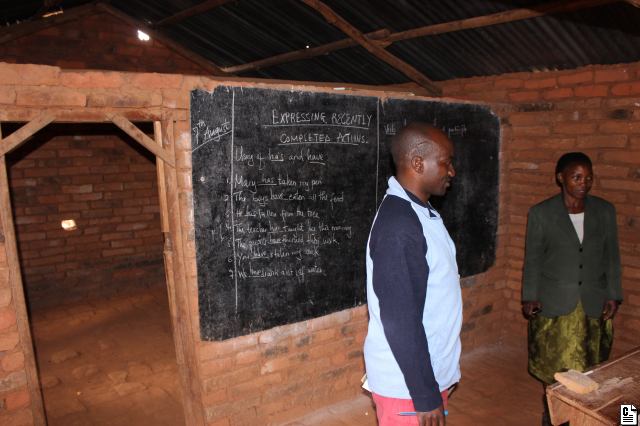 7th August
EXPRESSING RECENTLY
COMPLETED ACTIONS.
Using of has and have
1. Mary has taken my pen
2. The boys have eaten all the food
3. He has fallen from the tree
4. The teacher has taught us this morning
5. The girls have finished their work
6. You have stolen my
7. We have drank a lot of water